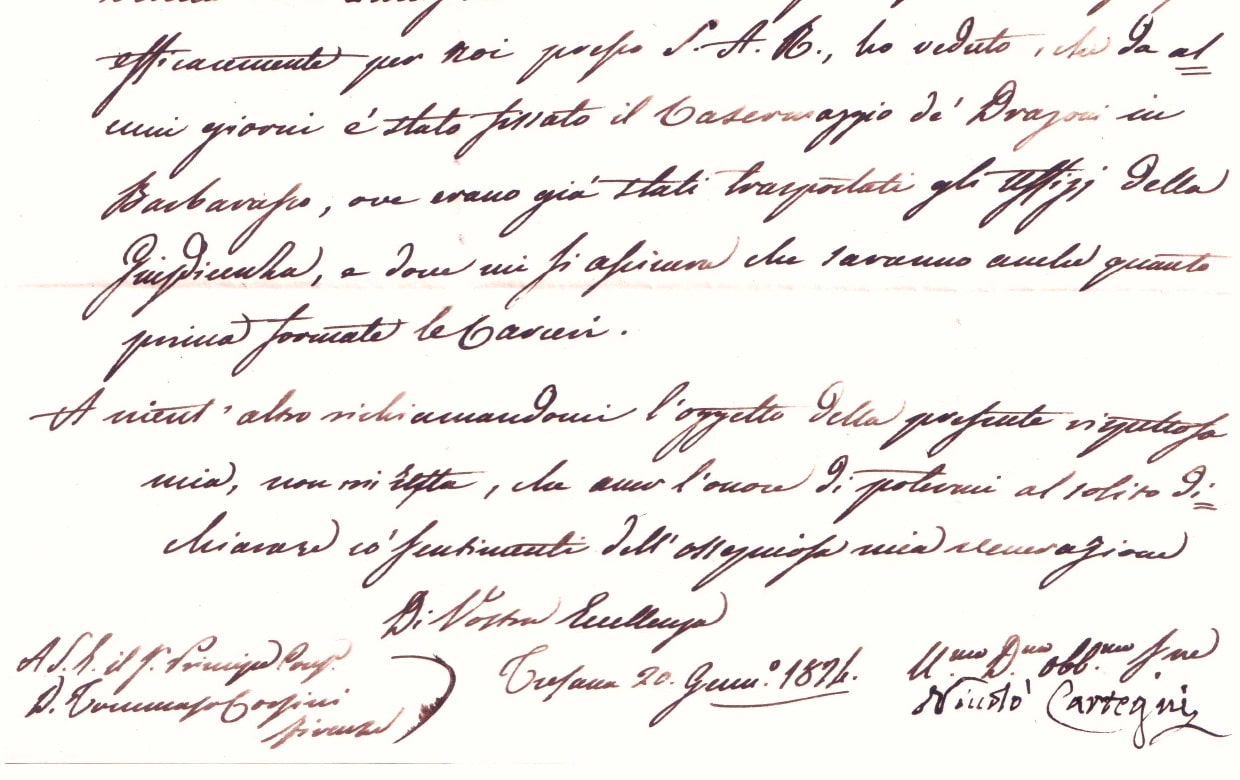 efficacemente per noi presso S. A. R., ho veduto, che da al=
cuni giorni é stato fissato il Casermaggio dé Dragoni in
Barbarasco, ove erano già stati trasportati gli Uffizj della
Giusdicenza, e dove mi si assicura che saranno anche quanto
prima formate le Carceri.
A nient' altro richiamandomi l'oggetto della presente rispettosa
mia, non mi resta, che aver l'onore di potermi al solito di=
chiarare có sentimenti dell'ossequiosa mia venerazione
Di Vostra Eccellenza
A S. E. il S.r Principe Cons.r
D. Tommaso Corsini
Firenze
Tresana 20. Genn.o 1824.
U.mo D.mo Obb.mo Sre
Niccolò Cartegni